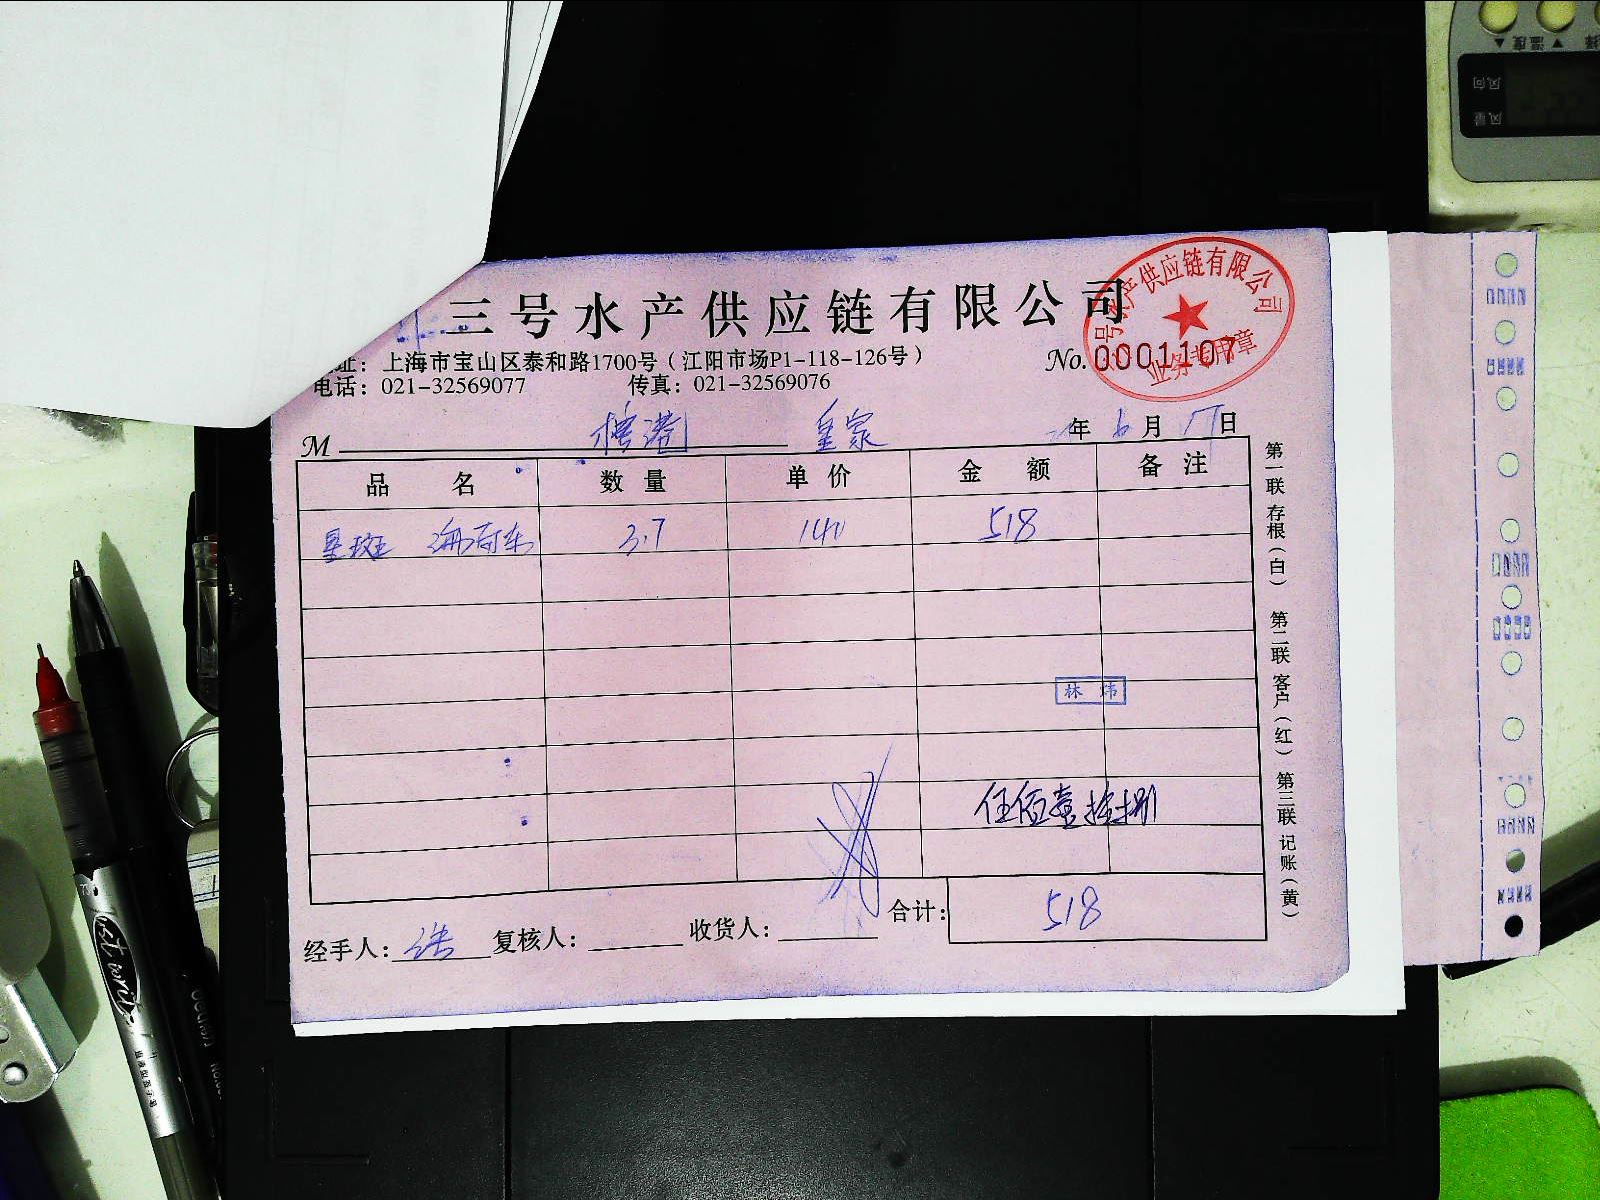 三号水产供应链有限公司
号水产供应链有限公司
业务专用章
址：上海市宝山区泰和路1700号（江阳市场P1-118-126号）
No.0001107
电话：021-32569077 传真：021-32569076
M 皇家 年 6 月 17 日
品名 数量 单价 金额 备注
星斑 3.7 140 518
林炜
伍佰壹拾捌
合计： 518
经手人： 复核人： 收货人：
第一联 存根（白） 第二联 客户（红） 第三联 记账（黄）
温度
风向
风量